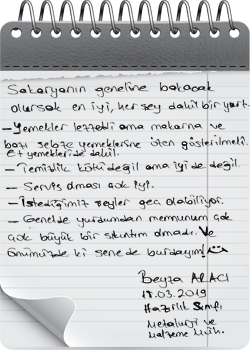 Sakaryanın geneline bakacak
olursak en iyi, her şey dahil bir yurt.
- Yemekler lezzetli ama makarna ve
bazı sebze yemeklerine özen gösterilmeli.
et yemekleri de dahil.
- Temizlik kötü değil ama iyi de değil.
- Servis olması çok iyi.
- İstediğimiz şeyler geç olabiliyor.
- Genelde yurdumdan memnunum çok
çok büyük bir sıkıntım olmadı. Ve
önümüzdeki sene de burdayım!
Beyza ALACI
18.03.2019
Hazırlık Sınıfı
Metalurji ve
Malzeme Müh.